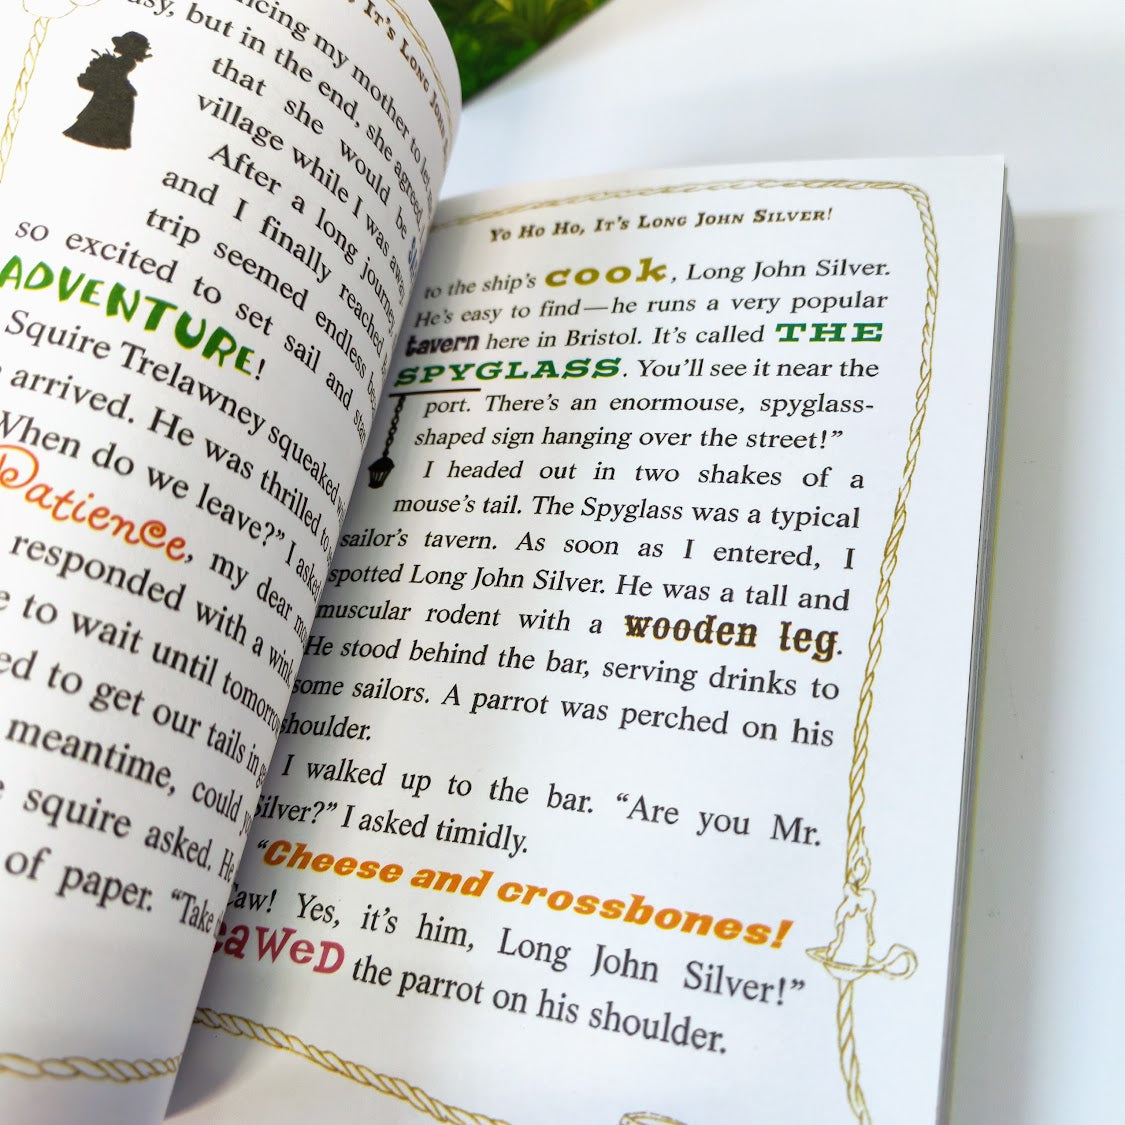 , It's Long John
my mother to let
easy, but in the end, she agreed
that she would be
village while I was away.
After a long journey,
and I finally reached
trip seemed endless
so excited to set sail and
ADVENTURE!
Squire Trelawney squeaked
arrived. He was thrilled to
When do we leave?" I asked
Patience, my dear
responded with a wink.
to wait until tomorrow
to get our tails in
meantime, could
squire asked. He
of paper. "Take
Yo Ho Ho, It's Long John Silver!
to the ship's cook, Long John Silver.
He's easy to find—he runs a very popular
tavern here in Bristol. It's called THE
SPYGLASS. You'll see it near the
port. There's an enormouse, spyglass-
shaped sign hanging over the street!"
I headed out in two shakes of a
mouse's tail. The Spyglass was a typical
sailor's tavern. As soon as I entered, I
spotted Long John Silver. He was a tall and
muscular rodent with a wooden leg.
He stood behind the bar, serving drinks to
some sailors. A parrot was perched on his
shoulder.
I walked up to the bar. "Are you Mr.
Silver?" I asked timidly.
"Cheese and crossbones!
Caw! Yes, it's him, Long John Silver!"
cawed the parrot on his shoulder.